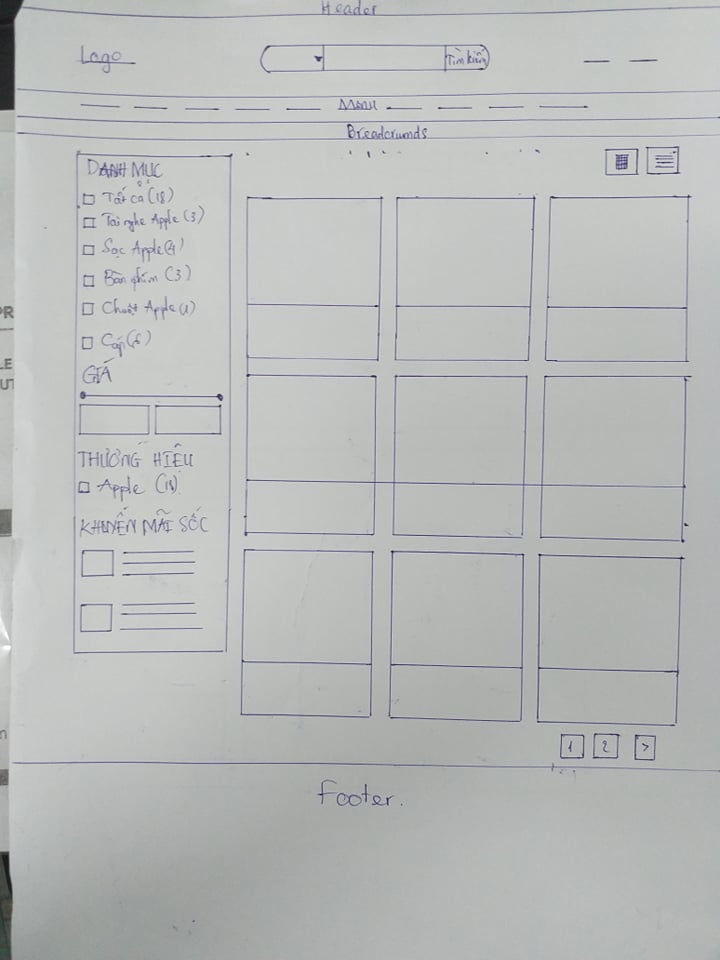 Header
Logo
Tìm kiếm
Menu
Breadcrumds
DANH MỤC
Tất cả (18)
Tai nghe Apple (3)
Sạc Apple (4)
Bàn phím (3)
Chuột Apple (2)
Cáp (6)
GIÁ
THƯƠNG HIỆU
Apple (18)
KHUYẾN MÃI SỐC
1 2 >
Footer.